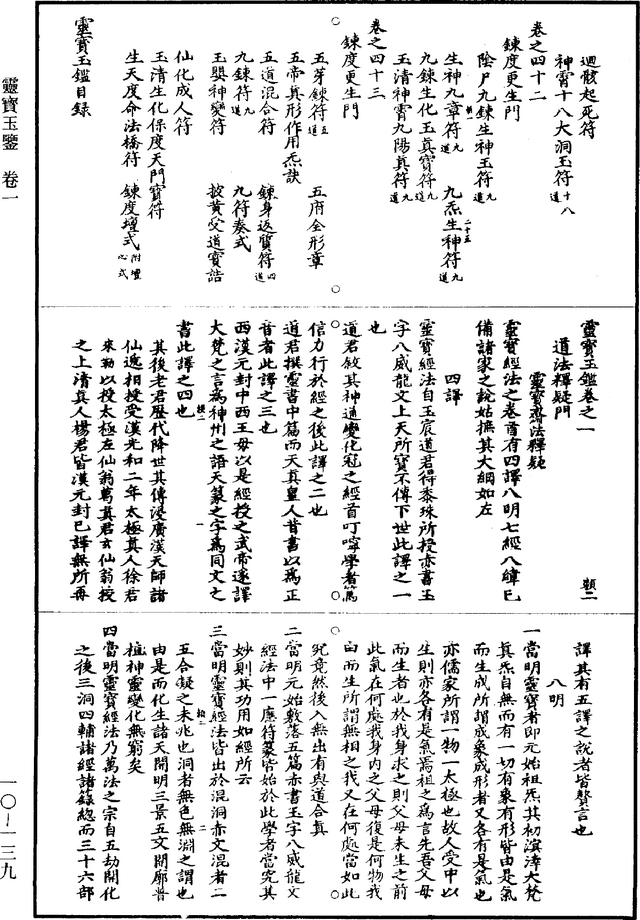 迴骸起死符
神霄十八大洞玉符十八道
卷之四十二
鍊度更生門
陰尸九鍊生神玉符九道
生神九章符九道 九炁生神符九道
九鍊生化玉真寶符九道
玉清神霄九陽真符九道
卷之四十三
鍊度更生門
五芽鍊符五道 五府全形章
五帝真形作用炁訣
五道混合符 鍊身返質符四道
九鍊符九道 九符奏式
玉嬰神變符 披黃受道寶誥
仙化成人符
玉清生化保度天門寶符
生天度命法橋符 鍊度壇式附壇心式
靈寶玉鑑目錄
靈寶玉鑑卷之一 顛二
道法釋疑門
靈寶齋法釋疑
靈寶經法之卷首有四譯八明七經八緯已
備諸家之說姑摭其大綱如左
四譯
靈寶經法自玉宸道君得黍珠所授赤書玉
字八威龍文上天所寶不傳下世此譯之一
也
道君敘其神通變化冠之經首叮嚀學者篤
信力行於經之後此譯之二也
道君撰靈書中篇而天真皇人昔書以為正
音者此譯之三也
西漢元封中西王母以是經授之武帝遂譯
大梵之言為神州之語天篆之字為同文之
書此譯之四也
其後老君歷代降世其傳浸廣漢天師諸
仙遞相授受漢光和二年太極真人徐君
來勒以授太極左仙翁葛真君玄仙翁授
之上清真人楊君皆漢元封已譯無所再
譯其有五譯之說者皆贅言也
八明
一當明靈寶者即元始祖炁其初溟涬大梵
真炁自無而有一切有象有形皆由是氣
而生成所謂成象成形者又各有是氣也
亦儒家所謂一物一太極也故人受中以
生則亦各有是氣焉祖之為言先吾父母
而生者也於我身求之則父母未生之前
此氣在何處我身內之父母復是何物我
由而生所謂無相之我又在何處當如此
究竟然後入無出有與道合真
二當明元始敷落五篇赤書玉字八威龍文
經法中一應符篆皆始於此學者當究其
妙則其功用如經所云
三當明靈寶經法皆出於混洞赤文混者二
五合凝之未兆也洞者無色無淵之謂也
由是而化生諸天開明三景五文開廓普
植神靈變化無窮矣
四當明靈寶經法乃萬法之宗自五劫開化
之後三洞四輔諸經諸籙總而三十六部
靈寶玉鑒 卷一
一〇－一三九